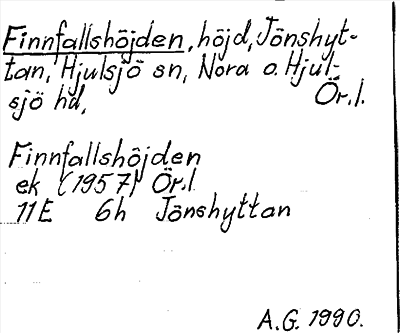 Finnfallshöjden, höjd, Jönshyt-
tan, Hjulsjö sn, Nora o. Hjul-
sjö hd, Ör.l.
Finnfallshöjden
ek (1957) Ör.l
11E 6h Jönshyttan
A.G. 1990.